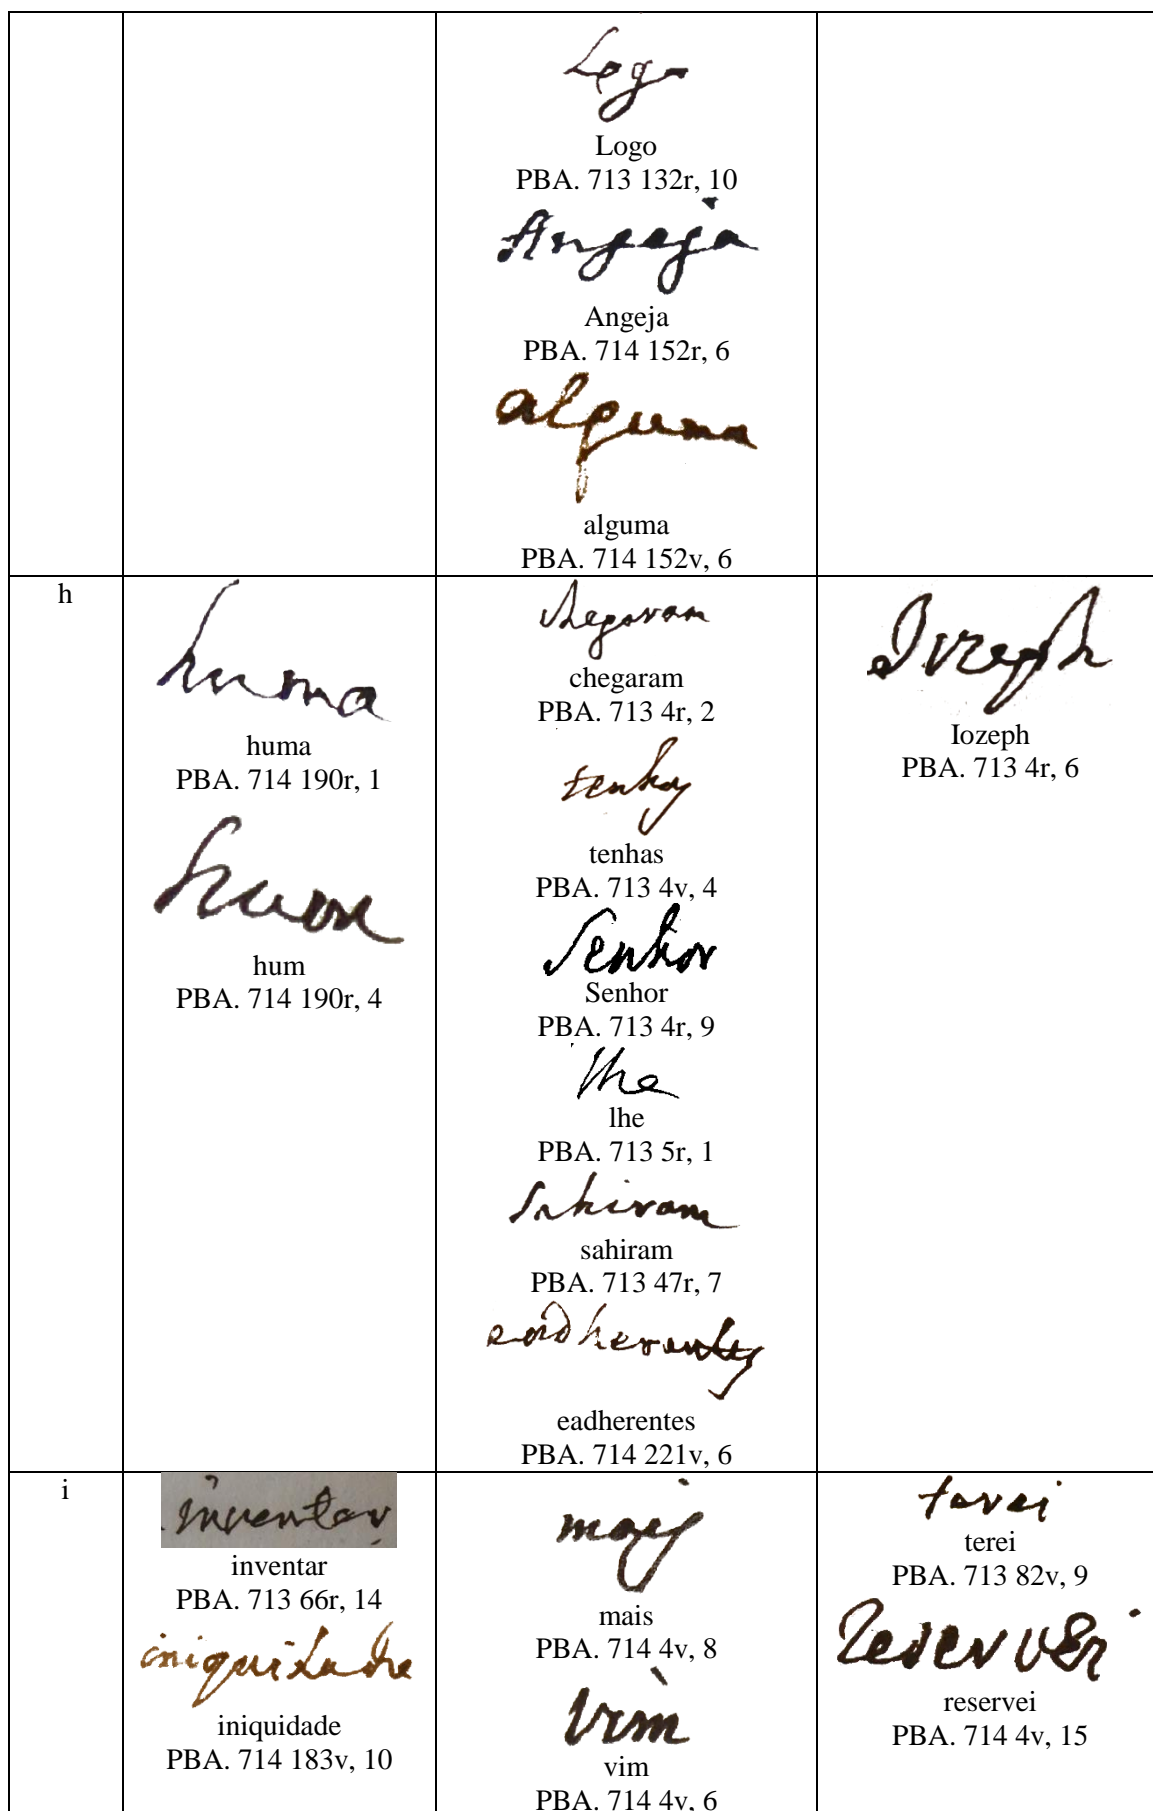 Logo
Logo
PBA. 713 132r, 10
Angeja
Angeja
PBA. 714 152r, 6
alguma
alguma
PBA. 714 152v, 6
h
huma
huma
PBA. 714 190r, 1
hum
hum
PBA. 714 190r, 4
chegaram
chegaram
PBA. 713 4r, 2
tenhas
tenhas
PBA. 713 4v, 4
Senhor
Senhor
PBA. 713 4r, 9
lhe
lhe
PBA. 713 5r, 1
sahiram
sahiram
PBA. 713 47r, 7
eadherentes
eadherentes
PBA. 714 221v, 6
Iozeph
Iozeph
PBA. 713 4r, 6
i
inventar
inventar
PBA. 713 66r, 14
iniquidade
iniquidade
PBA. 714 183v, 10
mais
mais
PBA. 714 4v, 8
vim
vim
PBA. 714 4v, 6
terei
terei
PBA. 713 82v, 9
reservei
reservei
PBA. 714 4v, 15